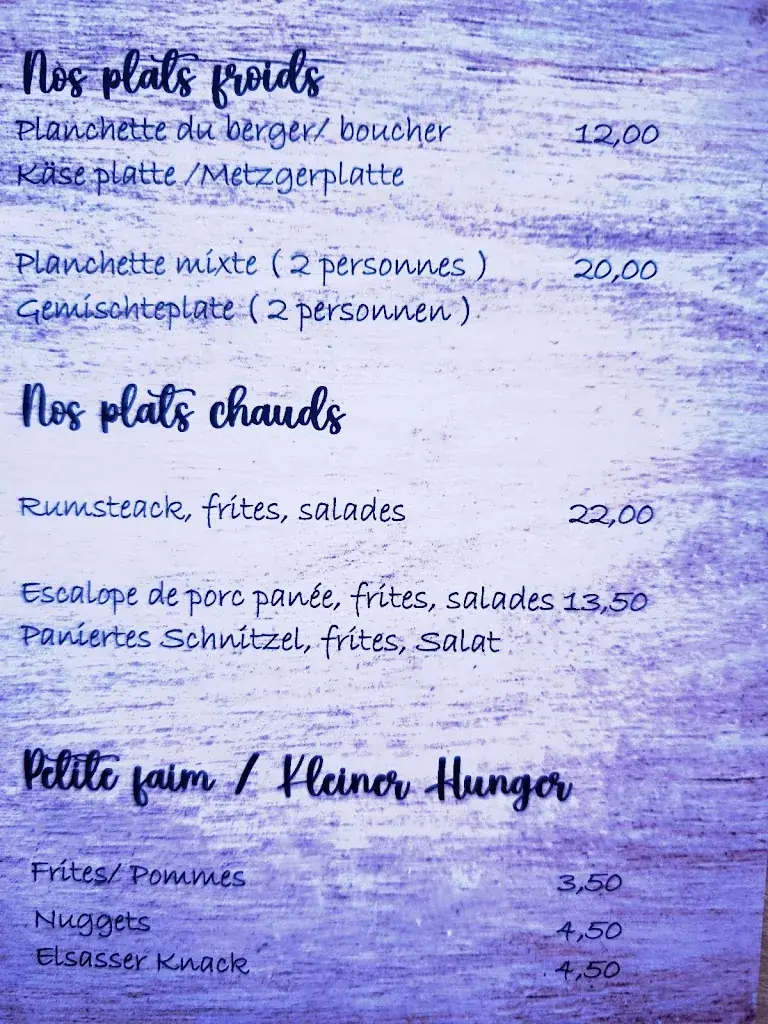 Nos plats froids
Planchette du berger/ boucher 12,00
Käse platte /Metzgerplatte
Planchette mixte ( 2 personnes ) 20,00
Gemischteplate ( 2 personnen )
Nos plats chauds
Rumsteack, frites, salades 22,00
Escalope de porc panée, frites, salades 13,50
Paniertes Schnitzel, frites, Salat
Petite faim / Kleiner Hunger
Frites/ Pommes 3,50
Nuggets 4,50
Elsasser Knack 4,50